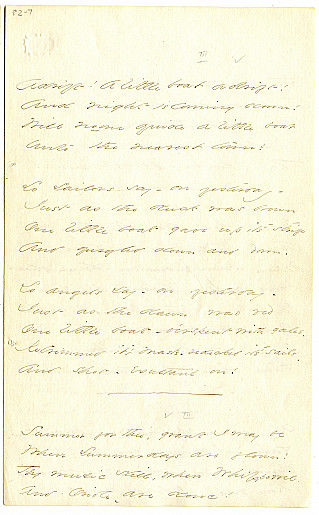 82-7
III
Adrift! A little boat adrift!
And night is coming down!
Will no one guide a little boat
Unto the nearest town?
So Sailors say - on yesterday -
Just as the dusk was brown
One little boat gave up its strife
And gurgled down and down.
So angels say - on yesterday -
Just as the dawn was red
One little boat - o'erspent with gales -
Retrimmed its masts - redecked its sails -
And shot - exultant on!
III
Summer for thee, grant I may be
When Summer days are flown!
Thy music still, when Whippowil
And Oriole, are done!